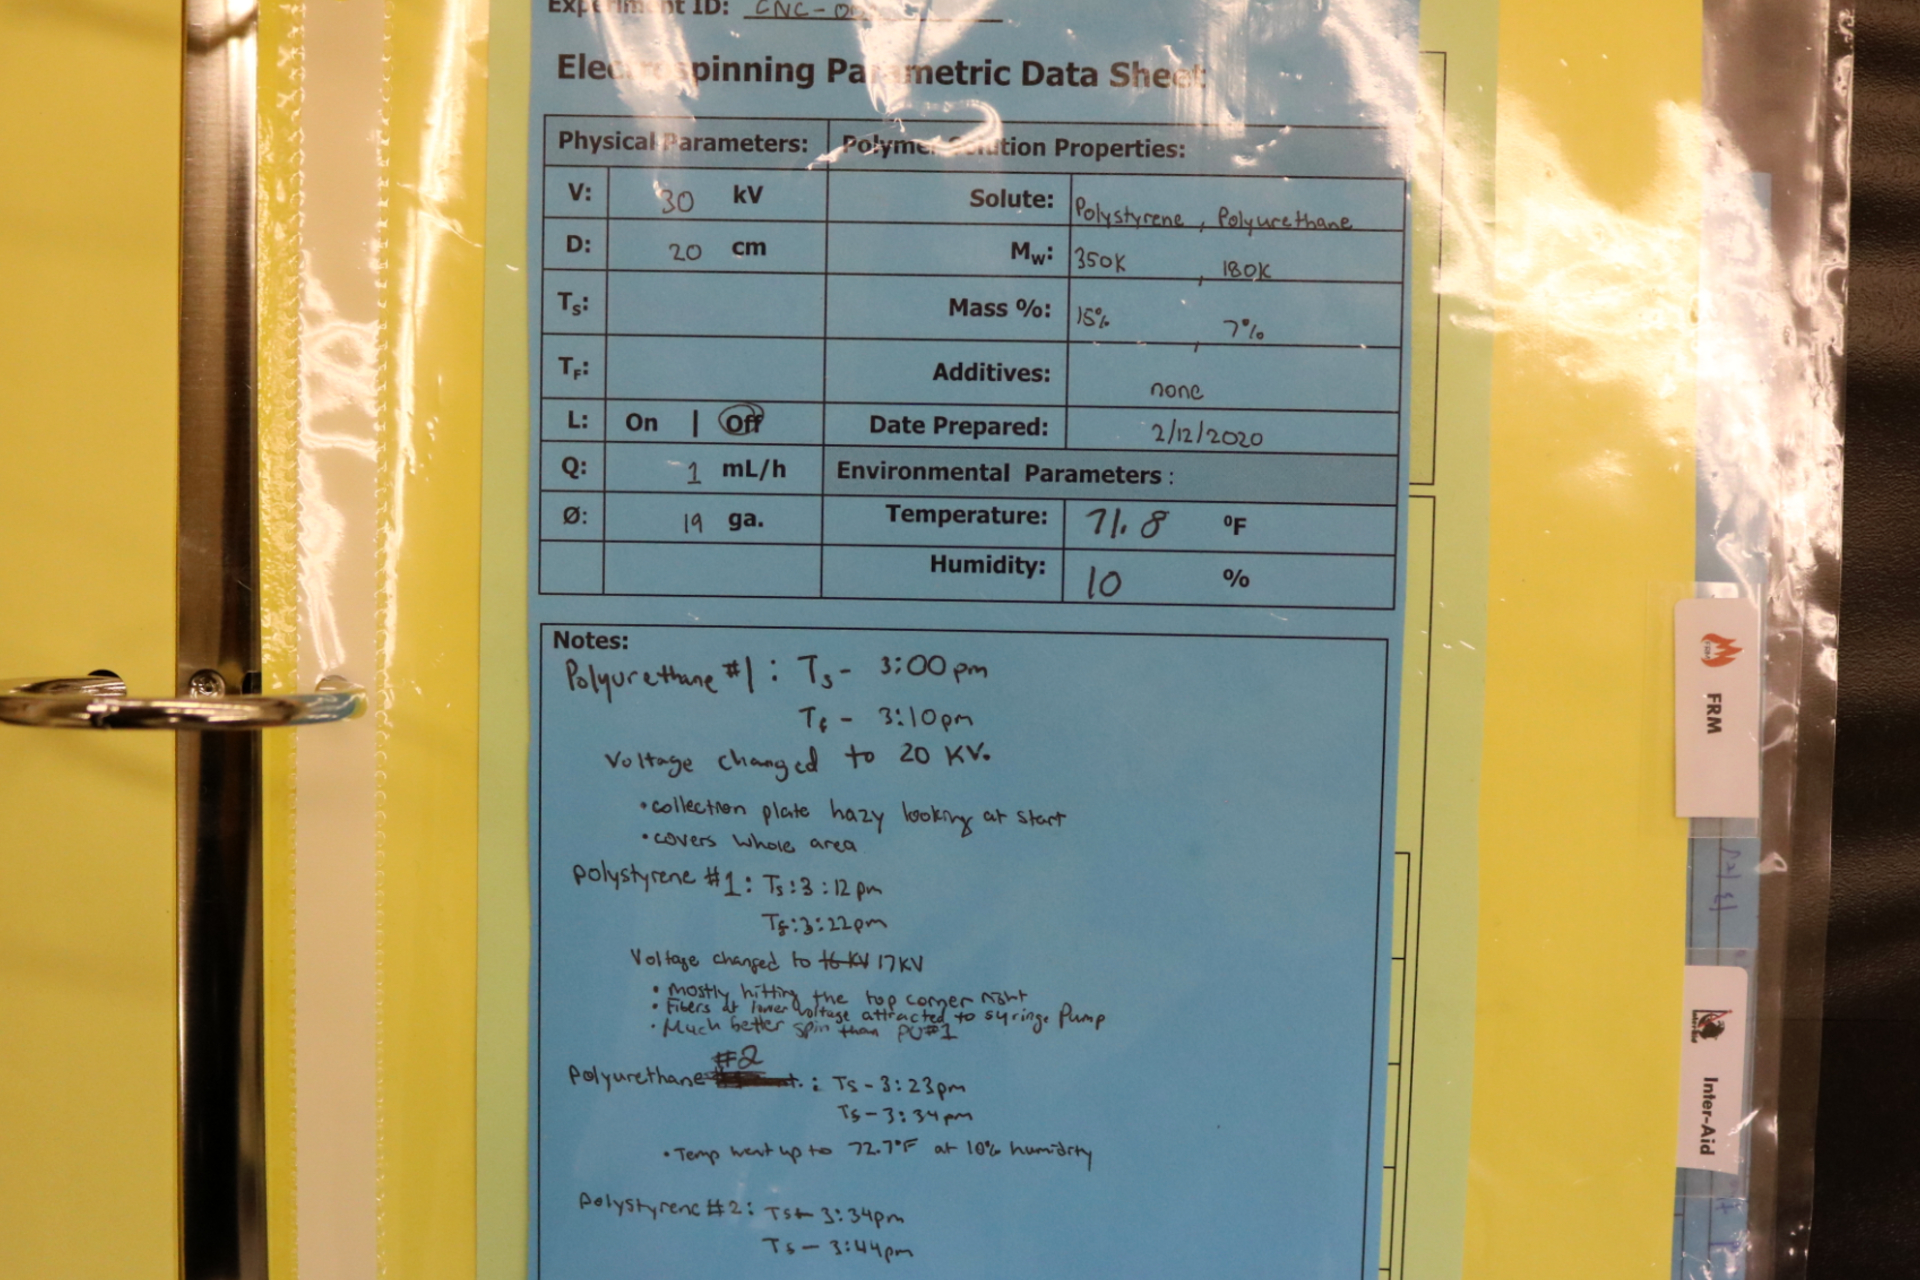 Experiment ID: CNC-
Electrospinning Parametric Data Sheet
Physical Parameters: Polymer Solution Properties:
V: 30 kV Solute: Polystyrene, Polyurethane
D: 20 cm Mw: 350K, 180K
Ts: Mass %: 15%, 7%
TF: Additives: none
L: On | Off Date Prepared: 2/12/2020
Q: 1 mL/h Environmental Parameters:
Ø: 19 ga. Temperature: 71.8 °F
Humidity: 10 %
Notes:
Polyurethane #1: Ts - 3:00 pm
Tf - 3:10pm
Voltage changed to 20 KV.
• collection plate hazy looking at start
• covers whole area
polystyrene #1: Ts: 3:12 pm
Tf: 3:22pm
Voltage changed to 16 KV 17KV
• Mostly hitting the top corner right
• Fibers at lower voltage attracted to syringe Pump
• Much better spin than PU#1
#2
Polyurethane : Ts - 3:23pm
Tf - 3:34pm
• Temp went up to 72.7°F at 10% humidity
Polystyrene #2: Ts - 3:34pm
Tf - 3:44pm
FRM
Inter-Aid